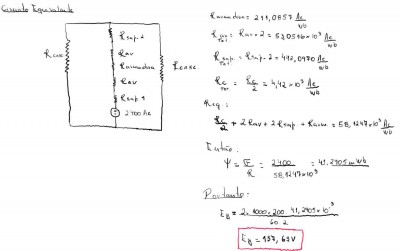 Circuito Equivalente
Rcore
Rsap. 2
Rav
Rarmadura
Rav
Rsap. 1
2400 Ae
Rcore
Rarmadura = 211,0857 Ae/Wb
Rav Tot = Rav × 2 = 53,0516 × 10³ Ae/Wb
Rsap. Tot = Rsap. × 2 = 442,0970 Ae/Wb
Rc Tot = Rc/2 = 4,42 × 10³ Ae/Wb
Req:
Rc/2 + 2 Rav + 2 Rsap + Rarm = 58,1247 × 10³ Ae/Wb
Então:
Ψ = F/R = 2400/58,1247 × 10³ = 41,2905 mWb
Portanto:
EB = 2 · 1000 · 200 · 41,2905 × 10⁻³ / 60 · 2
EB = 137,63 V